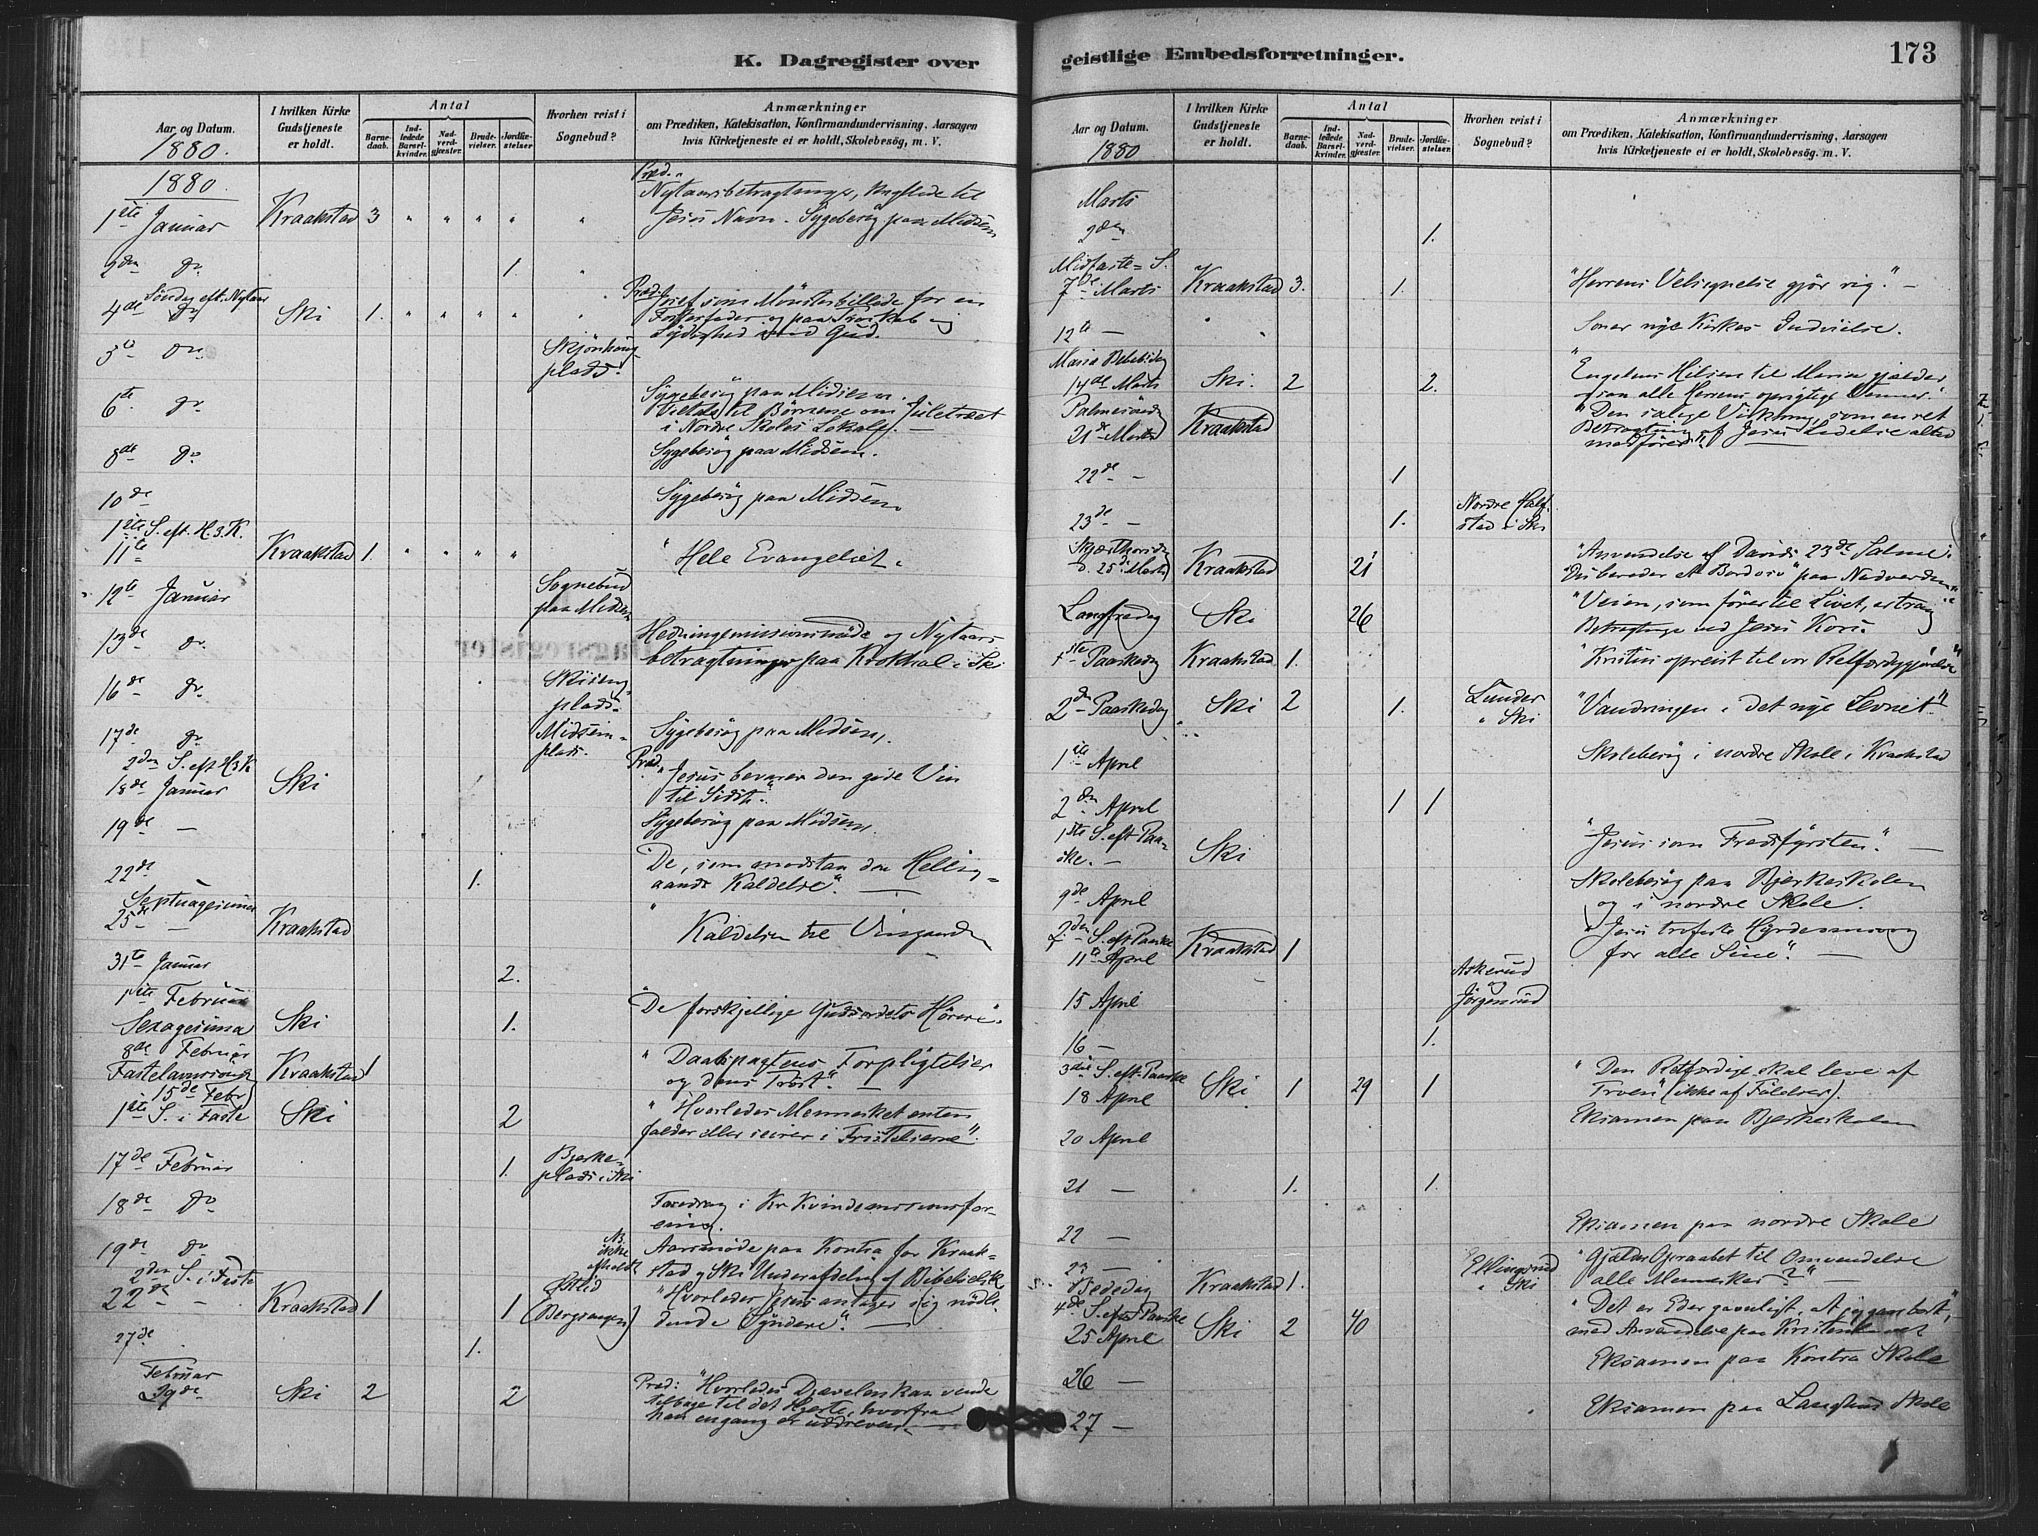 K. Dagregister over
geistlige Embedsforretninger.
173
Aar og Datum.
1880.
I hvilken Kirke
Gudstjeneste
er holdt.
Antal
Barne-
daab.
Ind-
ledede
Barsel-
kvinder.
Nad-
verd-
gjæster.
Brude-
vielser.
Jordfæ-
stelser
Hvorhen reist i
Sognebud?
Anmærkninger
om Prædiken, Katekisation, Konfirmandundervisning, Aarsagen
hvis Kirketjeneste ei er holdt, Skolebesøg, m. V.
1880.
Nytaarsbetragtninger, knyttede til
1ste Januar Kraakstad 3 " " " " " Jesu Navn. Sygebesøg paa Midsem
2den do 1. "
Søndag eft. Nytaar
4de do Ski 1. " " " " Josef som Mønsterbillede for en
Forsørger og paa Troskab og
Lydighed imod Gud.
5te do
plads.
6te do Sygebesøg paa Midsem.
til Børnene om Juletræet
i Nordre Skoles Lokale. —
8de do Sygebesøg paa Midsem.
10de Sygebesøg paa Midsem
1ste S. eft. H.3.K.
11te Kraakstad 1. " " " " " Hele Evangeliet.
12te Januar Sognebud
paa Midsem
13de do Hedningemissionsmøde og Nytaars-
betragtninger paa i Ski
16de do
plads.
17de do Midsem-
plads. Sygebesøg paa Midsem.
2den S. eft H3K
18de Januar Ski Præd. "Jesus bevarer den gode Vin
til Sidst."
19de — Sygebesøg paa Midsem.
22de 1. De, som modstaa den Hellig-
aands Kaldelse". —
Septuagesima
25de — Kraakstad " Kaldelsen til Viingaarden
31te Januar 2.
1ste Februar
Sexagesima Ski 1. "De forskjellige Gudsordets Hørere".
8de Februar
Fastelavnssøndag Kraakstad 1 " Daabspagtens Forpligtelser
og dens Trøst". —
15de Febr
1ste S. i Faste Ski 2 " Hvorledes Mennesket enten
falder eller seirer i Fristelserne".
17de Februar 1. Bjerke-
plads i Ski
18de do Foredrag i Kr Kvindemissionsfor-
ening.
19de do NB
ikke
afholdt Aarsmøde paa Kontra for Kraak-
stad og Ski Underafdeling af Bibelselsk
2den S. i Faste
22de — Kraakstad 1 1 "Hvorledes Jesus antager sig nødli-
dende Syndere". —
27de 1.
Februar
29de Ski 2 2 Præd: "Hvorledes Djævelen kan vende
tilbage til det Hjerte, hvorfra
han engang er uddreven. —
Aar og Datum.
1880
I hvilken Kirke
Gudstjeneste
er holdt.
Antal
Barne-
daab.
Ind-
ledede
Barsel-
kvinder.
Nad-
verd-
gjæster.
Brude-
vielser.
Jordfæ-
stelser.
Hvorhen reist i
Sognebud?
Anmærkninger
om Prædiken, Katekisation, Konfirmandundervisning, Aarsagen
hvis Kirketjeneste ei er holdt, Skolebesøg. m. V.
Marts
2den 1.
Midfaste-S.
7de Marts Kraakstad 3. 1. "Herrens Velsignelse gjør rig." —
12te — nye Kirkes Indvielse.
Maria Bebudelse
14de Marts Ski. 2 2. "Engelens Hilsen til Maria gjælder
alle Herrens oprigtige Venner."
Palmesøndag
21de Marts Kraakstad "Den salige Virkning, som en ret
Betragtning af Jesu Lidelse altid
medfører."
22de — 1
23de — 1. Nordre
stad i Ski
Skjærthorsdag
d. 25de Marts Kraakstad 21 "Anvendelse af Davids 23de Salme:
"Du bereder et Bord" paa Nadverden.
Langfredag Ski 26 "Veien, som fører til Livet, er trang"
Betragtning ved Jesu Kors.
1ste Paaskedag Kraakstad 1. "Kristus opreist til vor Retfærdiggjørelse"
2den Paaskedag Ski 2 1. Lunder
i Ski "Vandringen i det nye Levnet"
1ste April Skolebesøg i nordre Skole i Kraakstad
2den April 1 1
1ste S. eft Paa-
ske. — Ski "Jesus som Fredsfyrsten." —
9de April Skolebesøg paa Bjerkeskolen
og i nordre Skole.
2den S. eft Paaske
11te April Kraakstad 1 "Jesu trofaste Hyrdeomsorg
for alle Sine". —
15 April Askerud
og
Jørgensrud
16 — 1.
3die S. eft. Paaske
18 April Ski 1 29 1 " Den Retfærdige skal leve af
Troen" (ikke af Følelser).
20 April Eksamen paa Bjerkeskolen
21 — 1. 1.
22 — Eksamen paa nordre Skole
23 —
Bededag Kraakstad 1. Ellingsrud
i Ski "Gjælder Opraabet til Omvendelse
alle Mennesker?" —
4de S. eft Paaske
25 April Ski 2 40 "Det er Eder gavnligt, at jeg gaar bort",
med Anvendelse paa Kristenlivet
26 — Eksamen paa Kontra Skole
27 — Eksamen paa Langhus Skole